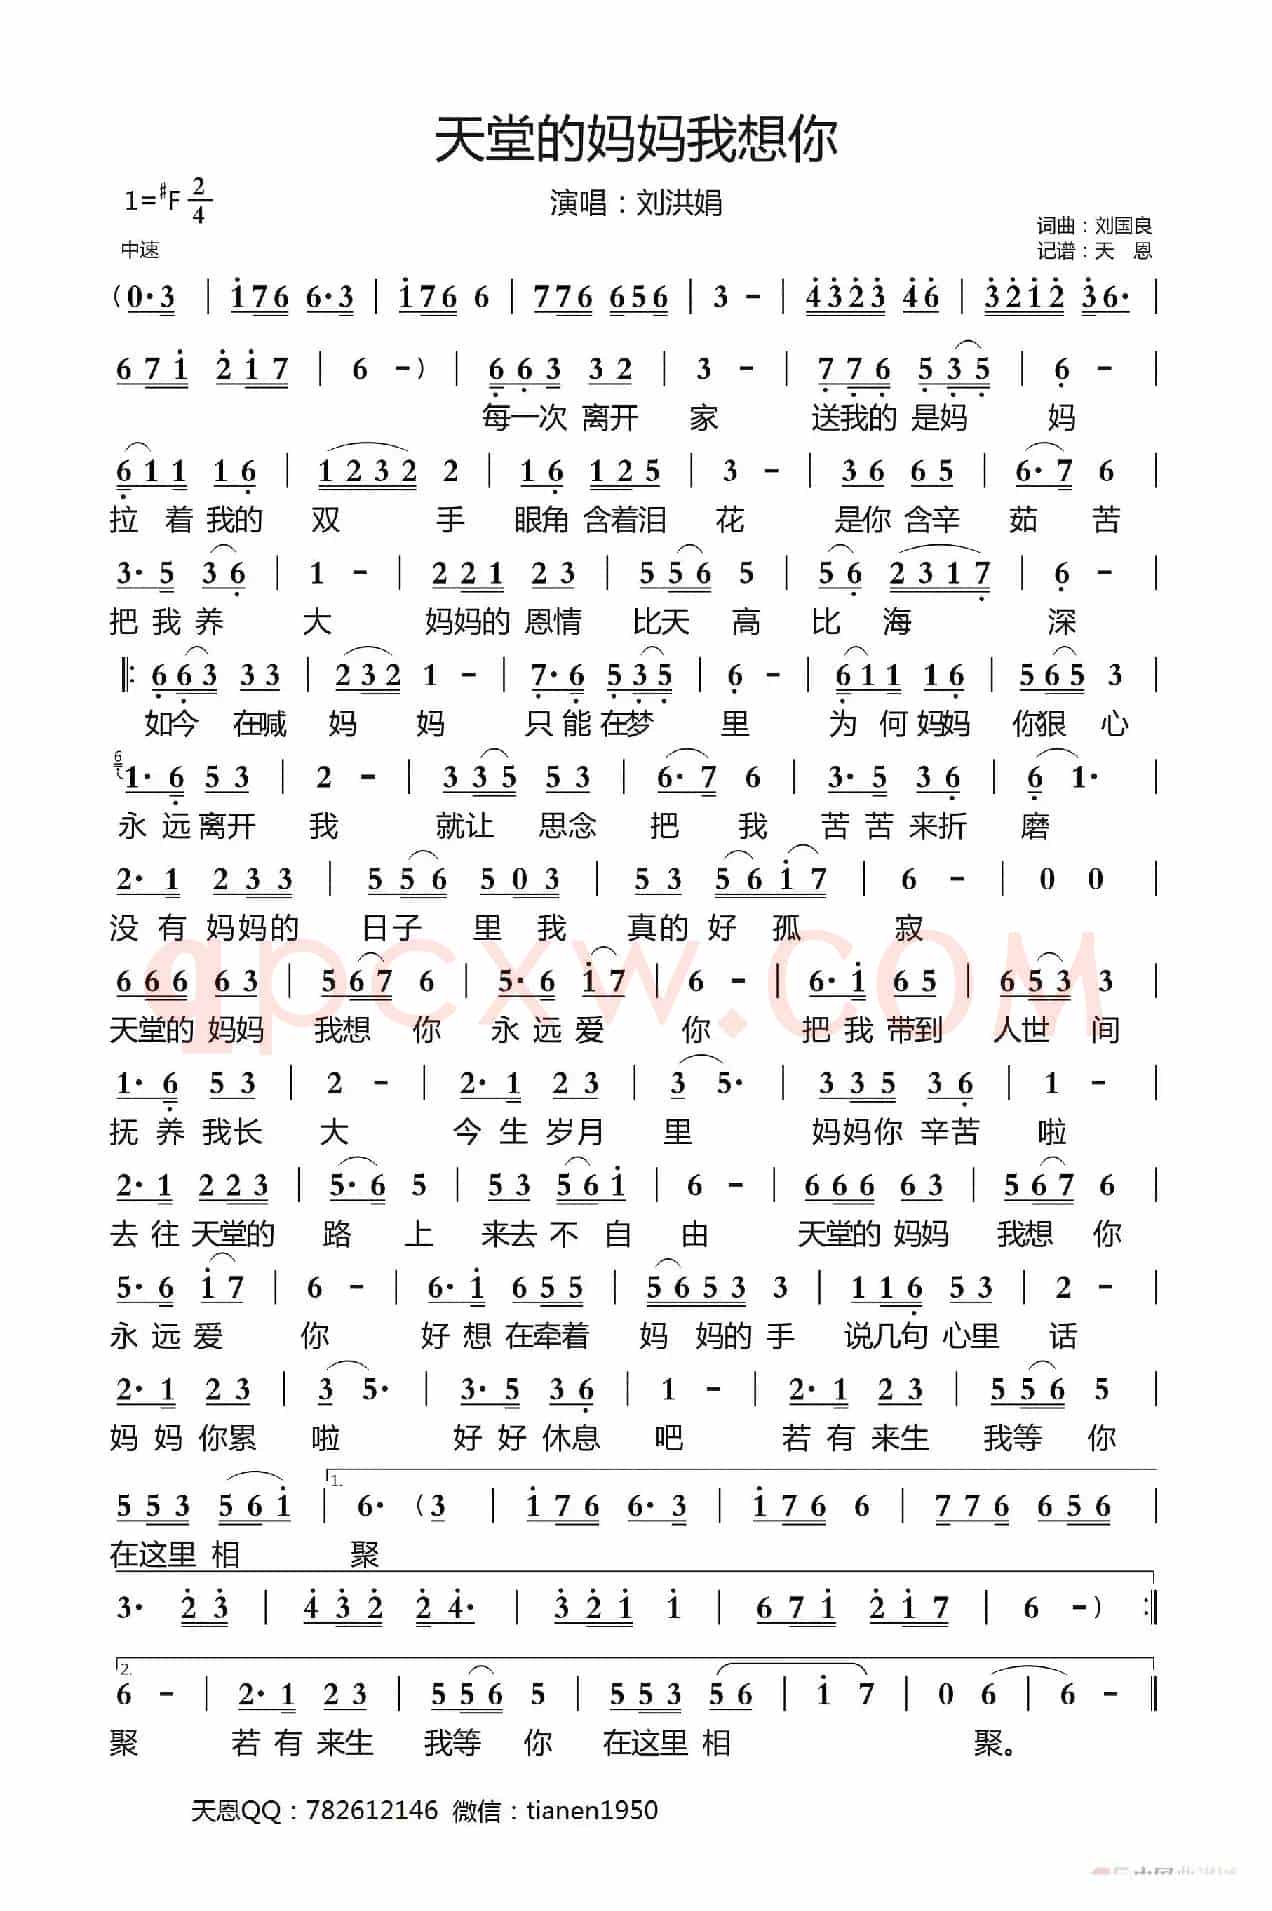 天堂的妈妈我想你
1=#F 2/4
演唱：刘洪娟
词曲：刘国良
中速
记谱：天 恩
(0·3 | i76 6·3 | i76 6 | 776 656 | 3 - | 4323 46 | 3212 36· |
67i 2i7 | 6 -) | 663 32 | 3 - | 776 535 | 6 - |
每一次 离开 家 送我的 是妈 妈
611 16 | 1232 2 | 16 125 | 3 - | 36 65 | 6·7 6 |
拉 着 我的 双 手 眼角 含着泪 花 是你 含辛 茹 苦
3·5 36 | 1 - | 221 23 | 556 5 | 56 2317 | 6 - |
把 我 养 大 妈妈的 恩情 比天 高 比 海 深
|: 663 33 | 232 1 - | 7·6 535 | 6 - | 611 16 | 565 3 |
如今 在喊 妈 妈 只 能 在梦 里 为 何 妈妈 你狠 心
6 1·6 53 | 2 - | 335 53 | 6·7 6 | 3·5 36 | 6 1· |
永 远 离开 我 就让 思念 把 我 苦 苦 来折 磨
2·1 233 | 556 503 | 53 56i7 | 6 - | 0 0 |
没 有 妈妈的 日子 里 我 真的 好 孤 寂
666 63 | 567 6 | 5·6 i7 | 6 - | 6·i 65 | 653 3 |
天堂的 妈妈 我想 你 永 远 爱 你 把 我 带到 人世 间
1·6 53 | 2 - | 2·1 23 | 3 5· | 335 36 | 1 - |
抚 养 我长 大 今 生 岁月 里 妈妈你 辛苦 啦
2·1 223 | 5·6 5 | 53 56i | 6 - | 666 63 | 567 6 |
去 往 天堂的 路 上 来去 不 自 由 天堂的 妈妈 我想 你
5·6 i7 | 6 - | 6·i 655 | 5653 3 | 116 53 | 2 - |
永 远 爱 你 好 想 在牵着 妈 妈的 手 说几句 心里 话
2·1 23 | 3 5· | 3·5 36 | 1 - | 2·1 23 | 556 5 |
妈 妈 你累 啦 好 好 休息 吧 若 有 来生 我等 你
553 56i | 1. 6· (3 | i76 6·3 | i76 6 | 776 656 |
在这里 相 聚
3· 23 | 432 24· | 32i i | 67i 2i7 | 6 -) :|
2. 6 - | 2·1 23 | 556 5 | 553 56 | i 7 | 0 6 | 6 - ||
聚 若 有 来生 我等 你 在这里 相 聚。
天恩QQ：782612146 微信：tianen1950
qpcxw.com